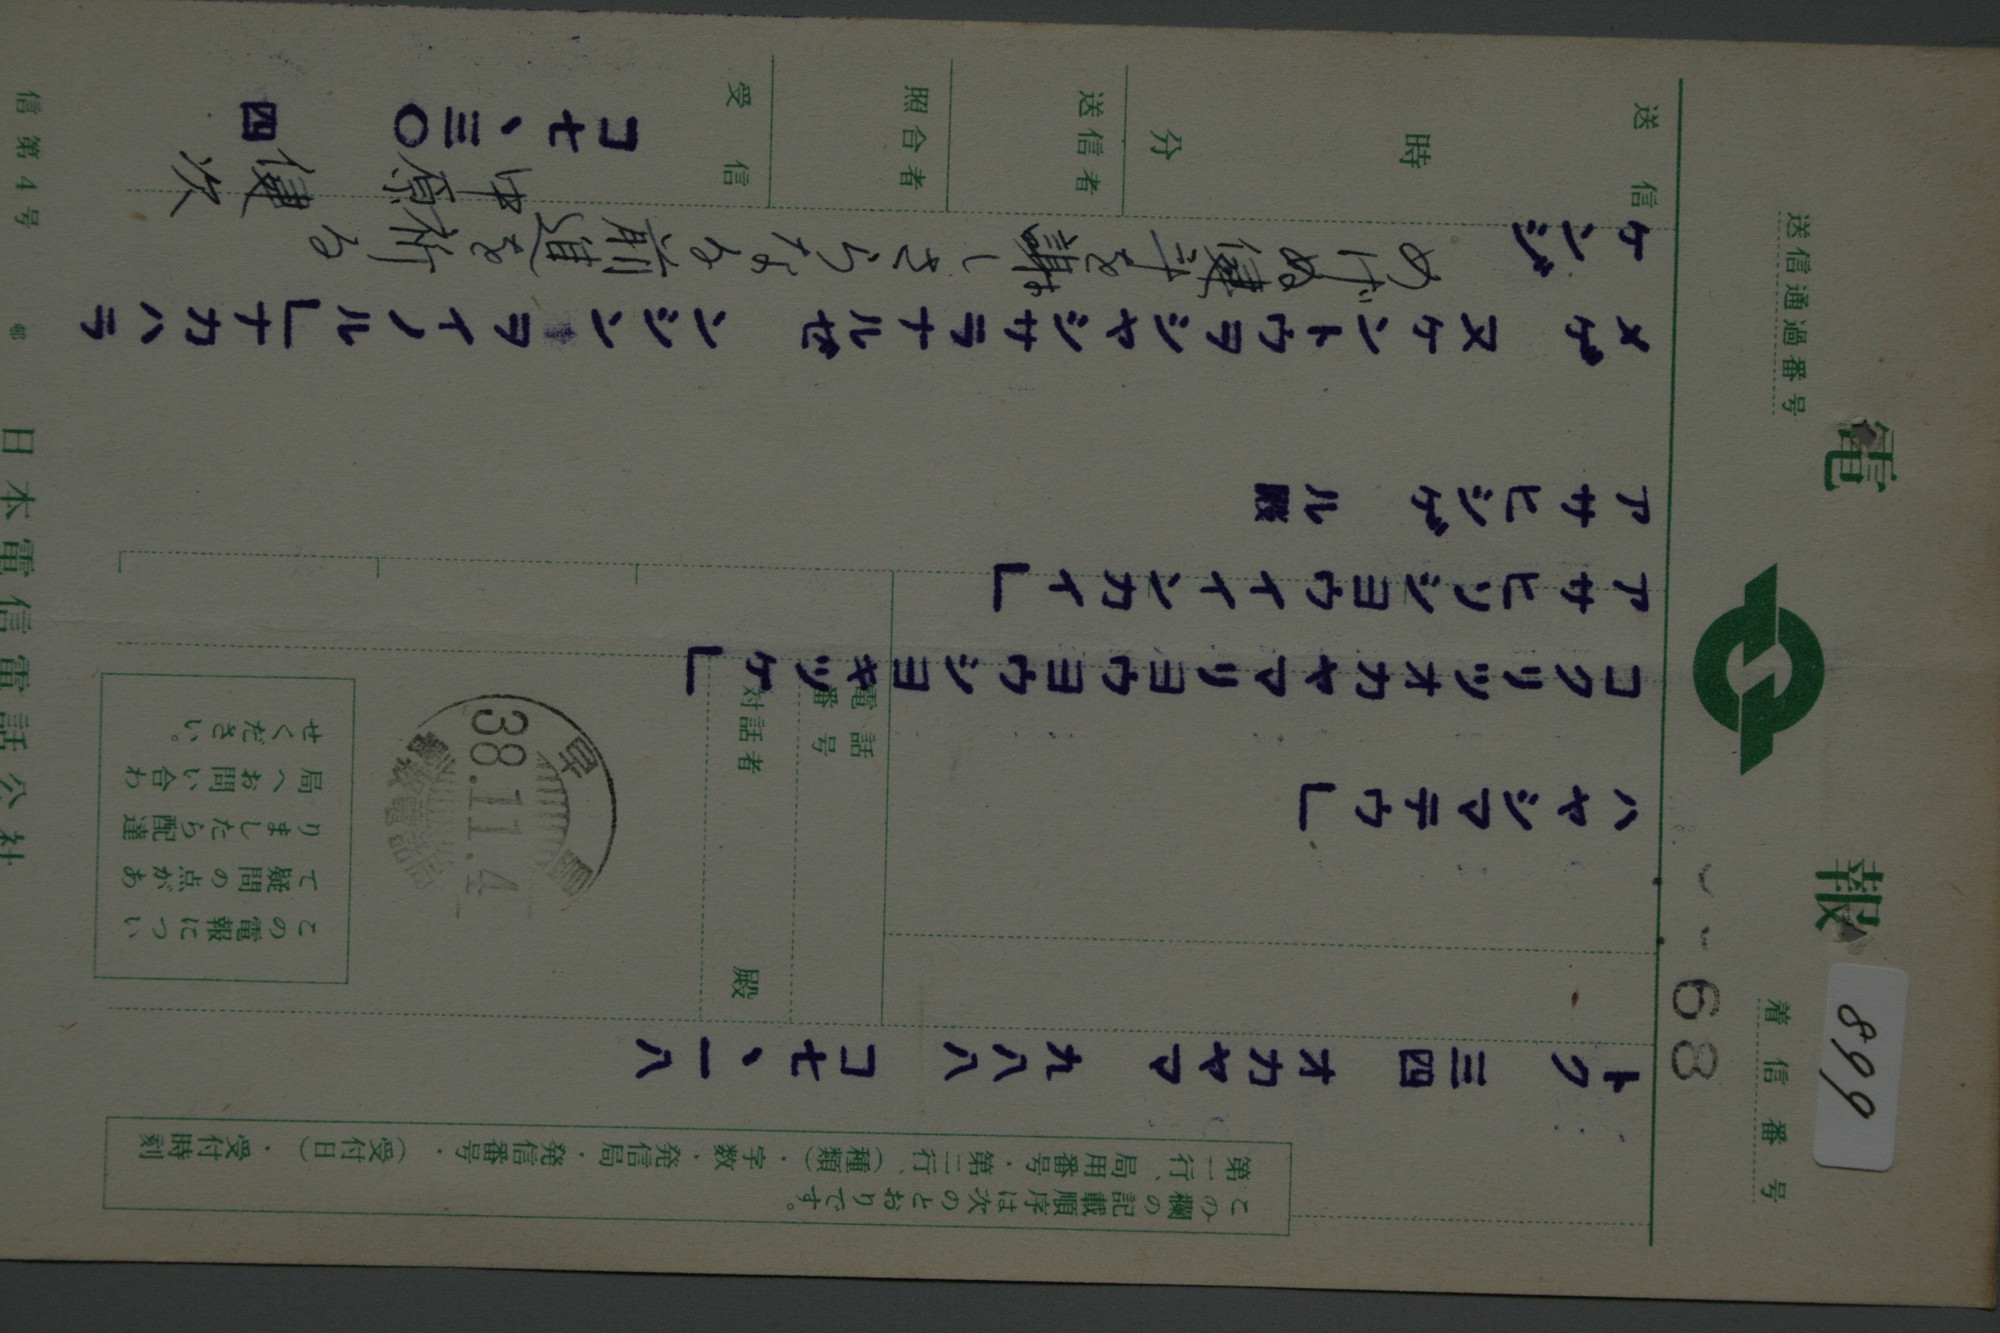 電報
899
送信通過番号
着信番号
68
この欄の記載順序は次のとおりです。
第一行、局用番号・第二行、(種類)・字数・発信局・発信番号・(受付日)・受付時刻
トク 三四 オカヤマ 九八八 コ七、一八
ハヤシマテウ」
コクリツオカヤマリヨウヨウシヨキツケ」
アサヒソシヨウイインカイ」
アサヒシゲ ル殿
電話番号
対話者 殿
早島
38.11.4
この電報につい
て疑問の点があ
りましたら配達
局へお問い合わ
せください。
メゲ ヌケントウヲシヤシサラナルゼ ンシンヲイノル」ナカハラ
ケンジ
めげぬ健斗を謝しさらなる前進を祈る
中原健次
送信
時 分
送信者
照合者
受信
コ七、三〇
四
信第4号
日本電信電話公社